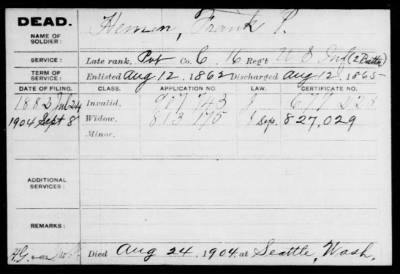 DEAD.
NAME OF SOLDIER: Hemen, Frank P.
SERVICE: Late rank, Pvt Co. C, 16 Reg't U S Inf (2 Batt)
TERM OF SERVICE: Enlisted Aug 12, 1862 Discharged Aug 12, 1865
DATE OF FILING. CLASS. APPLICATION NO. LAW. CERTIFICATE NO.
Invalid,
1904 Sept 8 Widow, 813 175 827,029
Minor.
ADDITIONAL SERVICES:
REMARKS:
Died Aug 24, 1904, at Seattle, Wash.